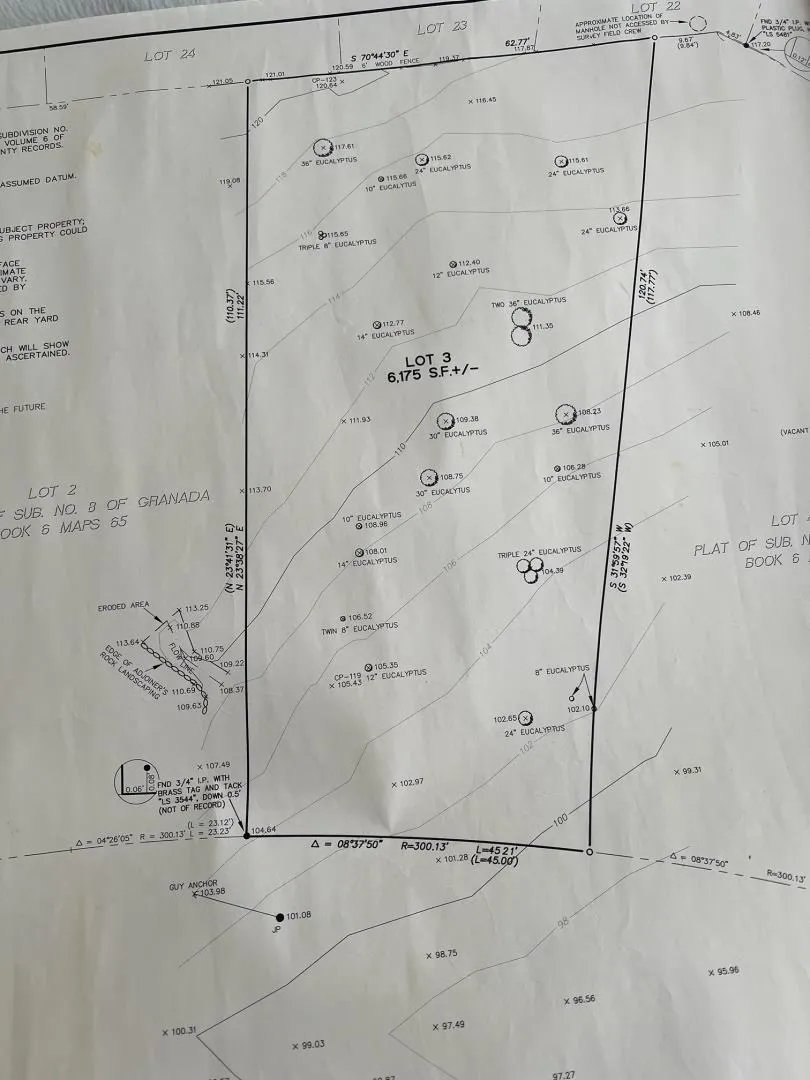 LOT 22
LOT 23
LOT 24
APPROXIMATE LOCATION OF
MANHOLE NOT ACCESSED BY
SURVEY FIELD CREW
FND 3/4" I.P. W
PLASTIC PLUG,
"LS 5461"
117.20
9.67
(9.84')
4.83'
62.77'
117.87
S 70°44'30" E
6' WOOD FENCE
119.37
120.59
121.01
121.05
CP-123
120.64
58.59'
120
116.45
SUBDIVISION NO.
VOLUME 6 OF
NTY RECORDS.
ASSUMED DATUM.
UBJECT PROPERTY;
G PROPERTY COULD
FACE
IMATE
VARY.
ED BY
S ON THE
REAR YARD
CH WILL SHOW
ASCERTAINED.
HE FUTURE
117.61
36" EUCALYPTUS
118
115.62
24" EUCALYPTUS
115.61
24" EUCALYPTUS
115.66
10" EUCALYTUS
119.08
113.66
24" EUCALYPTUS
115.65
TRIPLE 8" EUCALYPTUS
116
112.40
12" EUCALYPTUS
115.56
114
(110.37')
111.22'
120.74'
(117.77')
TWO 36" EUCALYPTUS
111.35
108.46
112.77
14" EUCALYPTUS
114.31
LOT 3
6,175 S.F.+/-
112
111.93
109.38
30" EUCALYPTUS
108.23
36" EUCALYPTUS
105.01
(VACANT
110
108.75
30" EUCALYTUS
106.28
10" EUCALYPTUS
113.70
108
LOT 2
F SUB. NO. 8 OF GRANADA
OOK 6 MAPS 65
10" EUCALYPTUS
108.96
108.01
14" EUCALYPTUS
TRIPLE 24" EUCALYPTUS
104.39
106
LOT
PLAT OF SUB. N
BOOK 6
(N 23°41'31" E)
N 23°38'27" E
S 31°59'57" W
(S 32°19'22" W)
102.39
ERODED AREA
113.25
110.88
113.64
110.75
109.60
109.22
FLOW LINE
EDGE OF ADJOINER'S
ROCK LANDSCAPING
110.69
109.63
108.37
106.52
TWIN 8" EUCALYPTUS
104
105.35
CP-119
12" EUCALYPTUS
105.43
8" EUCALYPTUS
102.10
102.65
24" EUCALYPTUS
102
107.49
0.06'
0.08'
FND 3/4" I.P. WITH
BRASS TAG AND TACK
"LS 3544", DOWN 0.5'
(NOT OF RECORD)
102.97
99.31
100
(L = 23.12')
Δ = 04°26'05" R = 300.13' L = 23.23'
104.64
Δ = 08°37'50" R=300.13' L=45.21'
101.28
(L=45.00')
Δ = 08°37'50"
R=300.13'
GUY ANCHOR
103.98
101.08
JP
98
98.75
95.96
96.56
97.49
100.31
99.03
97.27